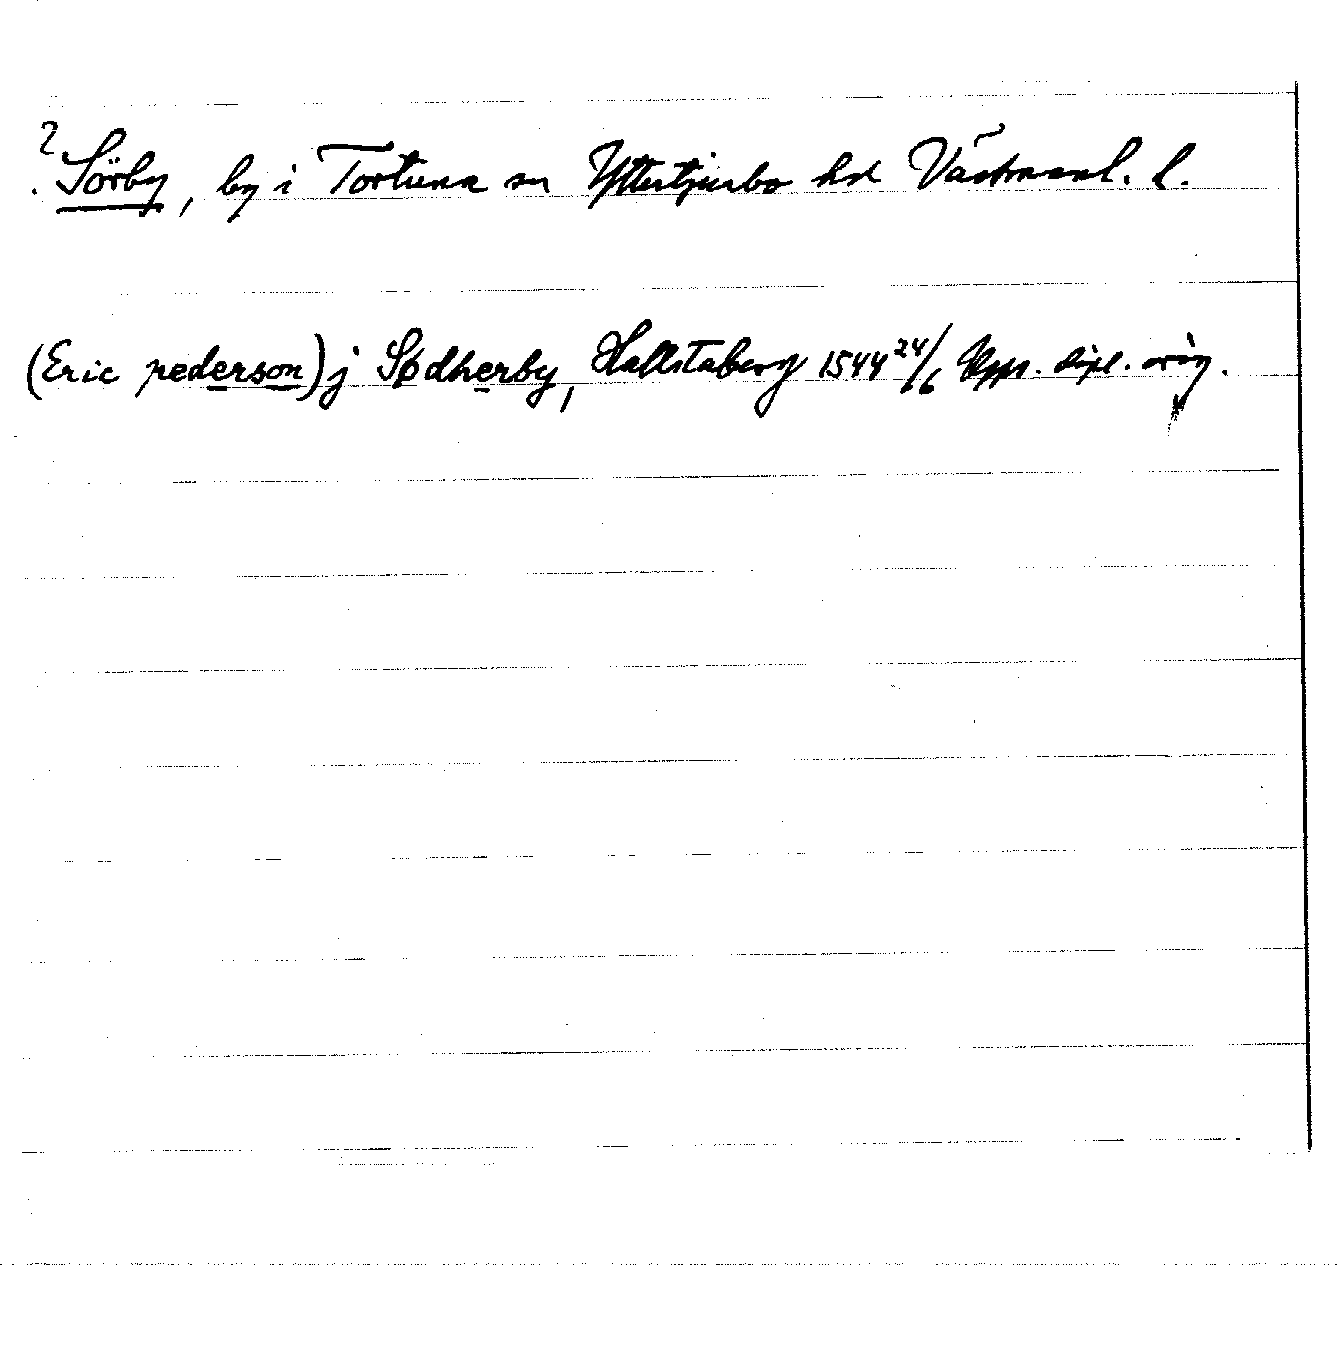 ? Sörby, by i Tortuna sn Yttertjurbo hd Västmanl. l.
(Eric pederson) j Sødherby, Hallstaberg 1544 24/6 Upps. dipl. orig.